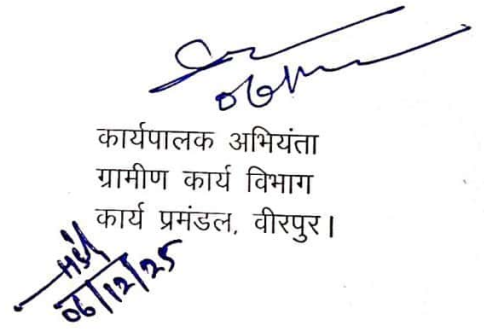 06/12
कार्यपालक अभियंता
ग्रामीण कार्य विभाग
कार्य प्रमंडल, वीरपुर।
06/12/25